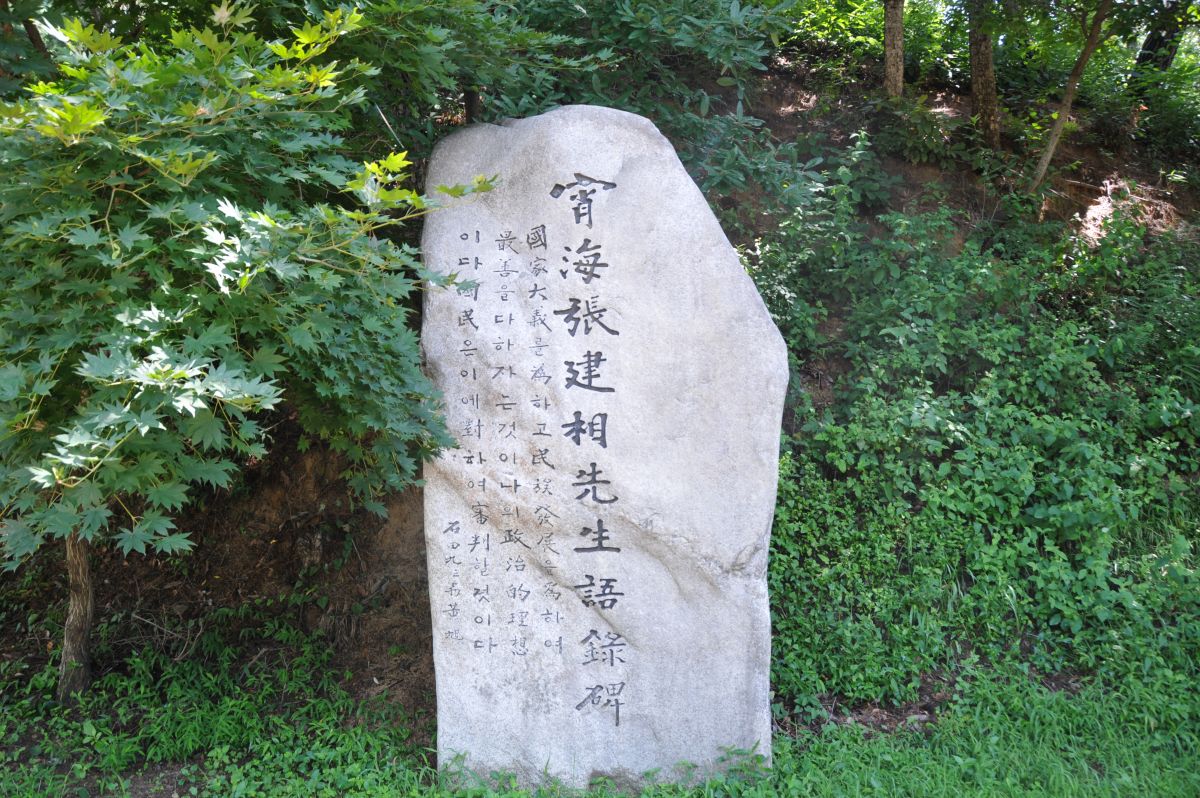 宵海張建相先生語錄碑
國家大義를 爲하고 民族發展을 爲하여
最善을 다하자는 것이 나의 政治的 理想
이다 國民은 이에 對하여 審判할 것이다